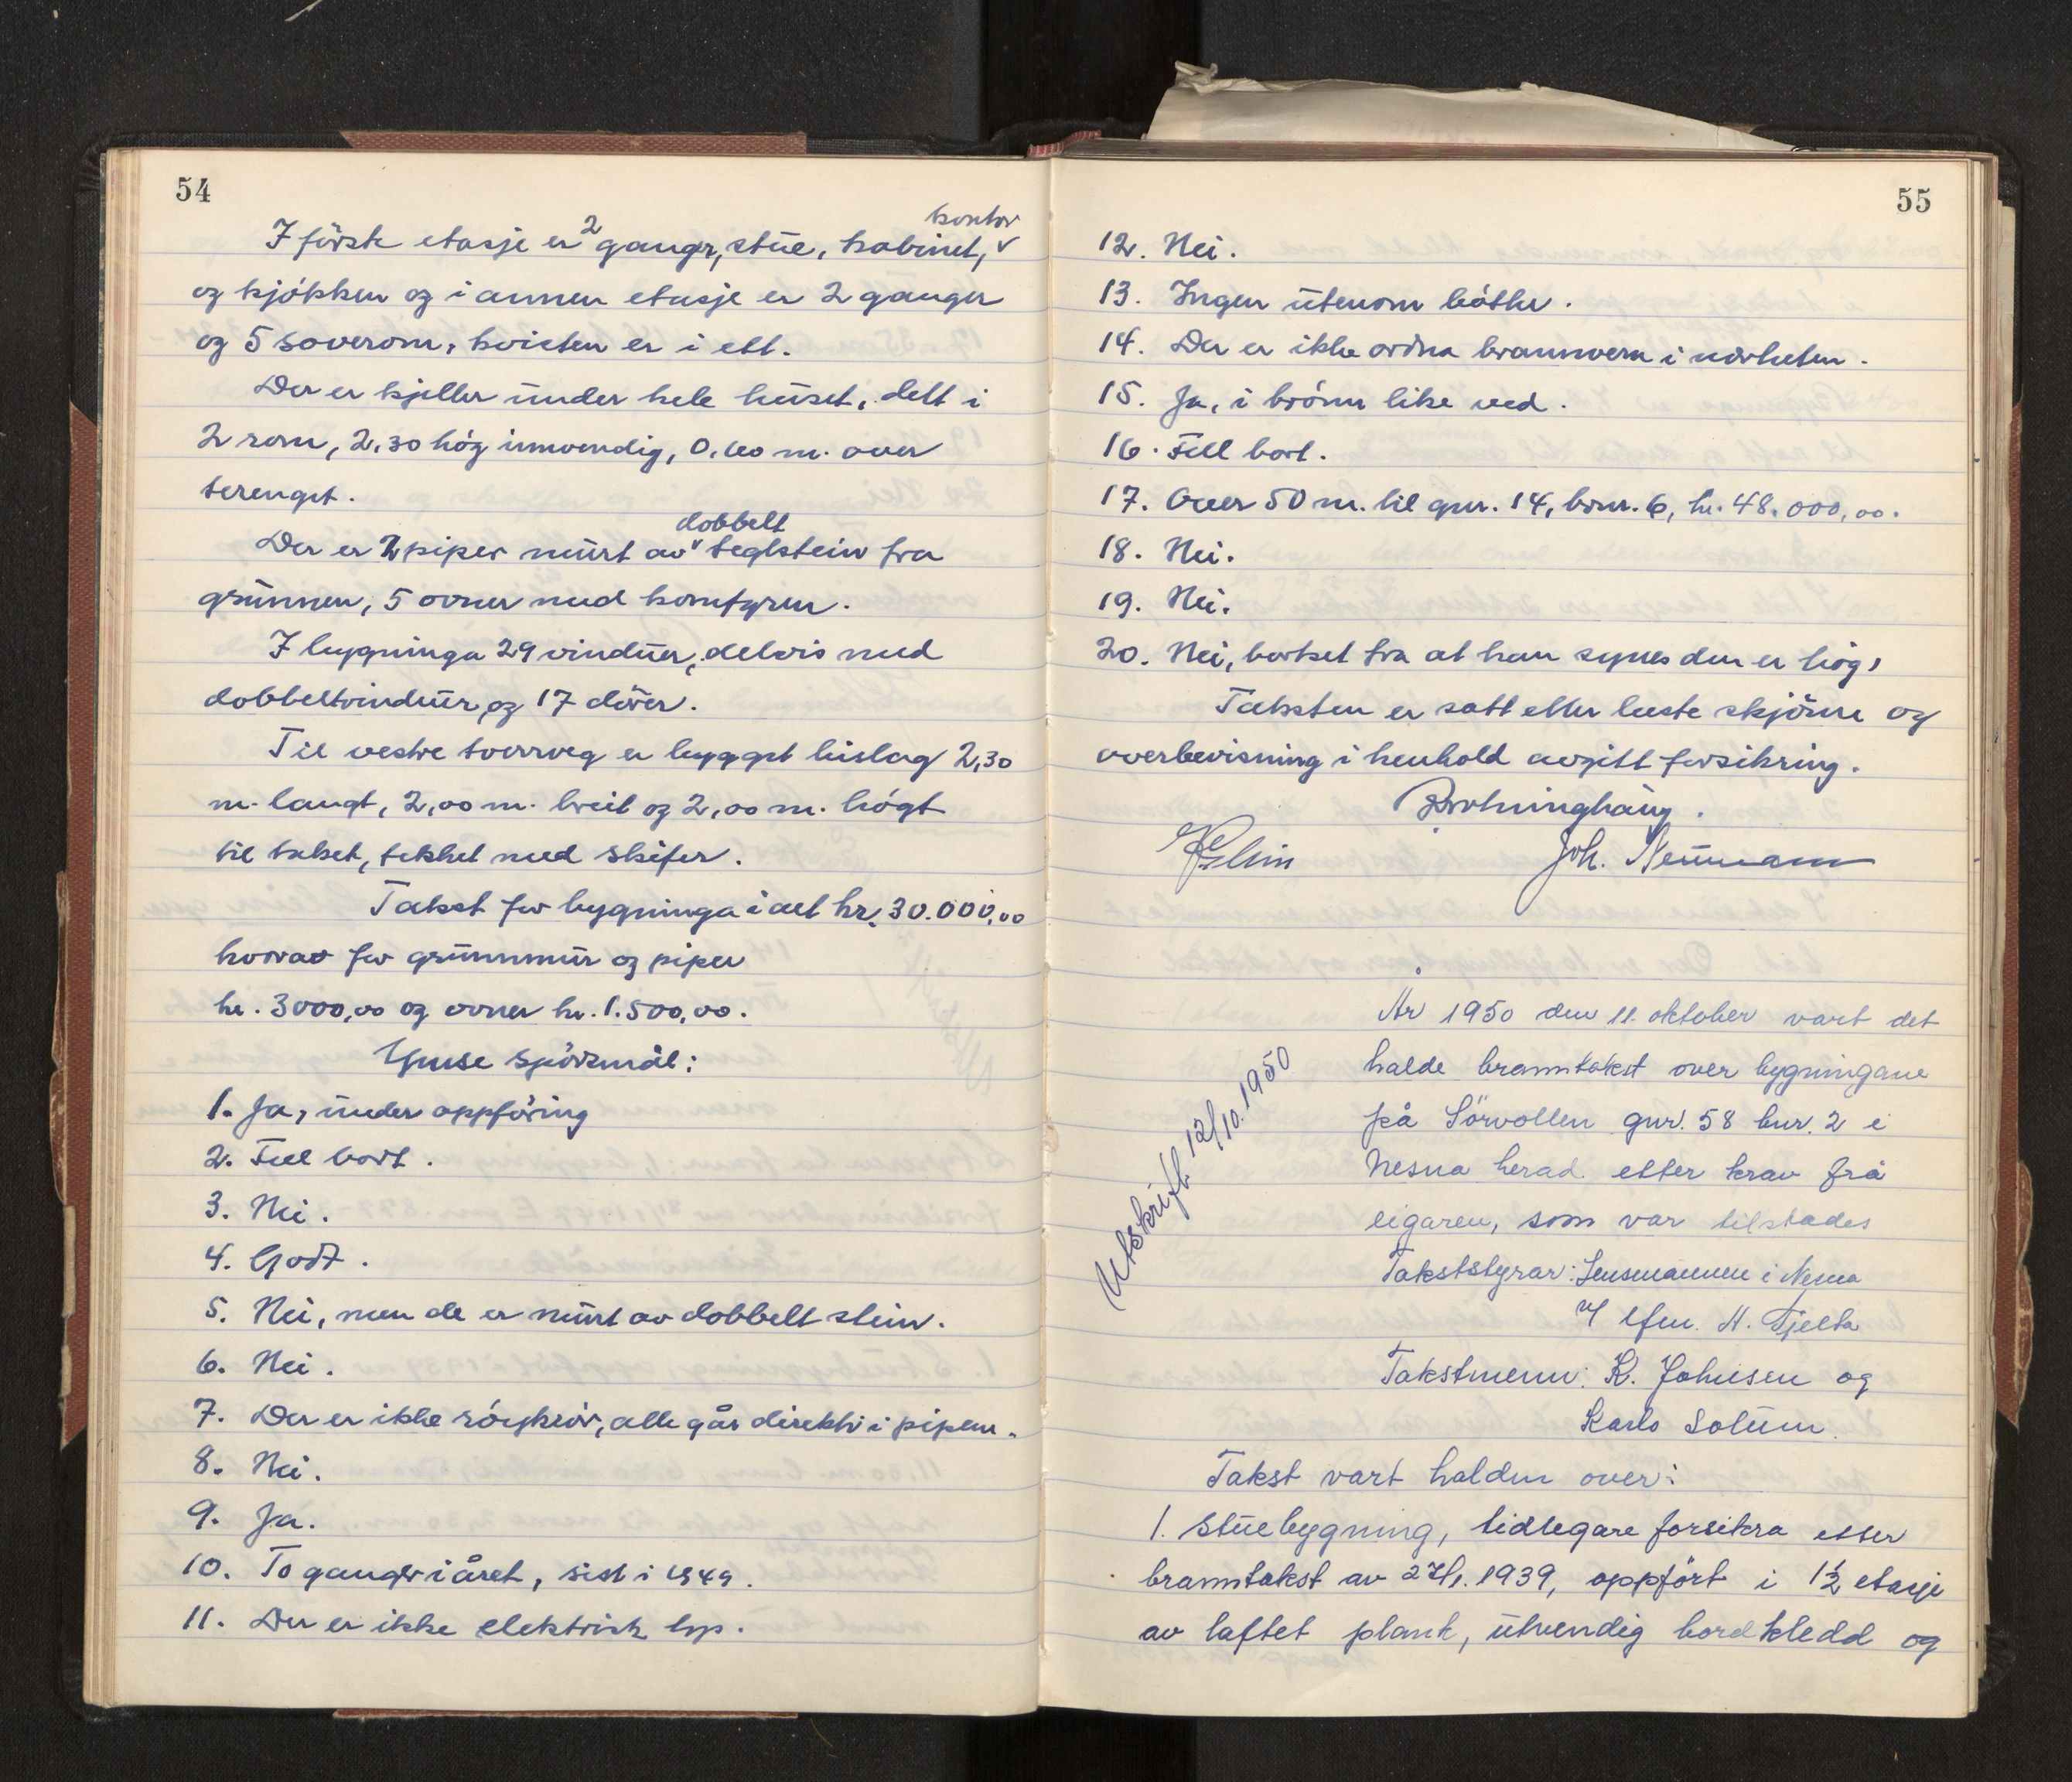 54
I förste etasje er 2 ganger, stue, kabinet, kontor
og kjökken og i annen etasje er 2 ganger
og 5 soverom, kvisten er i ett.
Der er kjeller under hele huset, delt i
2 rom, 2,30 hög innvendig, 0,60 m. over
terenget.
Der er 2 piper murt av dobbelt teglstein fra
grunnen, 5 ovner med komfyren.
I bygninga 29 vinduer, delvis med
dobbeltvinduer og 17 dörer.
Til vestre tverrveg er bygget bislag 2,30
m. langt, 2,00 m. breit og 2,00 m. högt
til taket, tekket med skifer.
Takst for bygninga i alt kr. 30.000,00
hvorav for grunnmur og piper
kr. 3000,00 og ovner kr. 1.500,00.
Ymse spörsmål:
1. Ja, under oppföring
2. Fell bort.
3. Nei.
4. Godt.
5. Nei, men de er murt av dobbelt stein.
6. Nei.
7. Der er ikke röykrör, alle går direkte i pipene.
8. Nei.
9. Ja.
10. To ganger i året, sist i 1949.
11. Der er ikke elektrisk lys.
55
12. Nei.
13. Ingen utenom bötter.
14. Der er ikke ordna brannvern i nærheten.
15. Ja, i brönn like ved.
16. Fell bort.
17. Over 50 m. til gnr. 14, bnr. 6, kr. 48.000,00.
18. Nei.
19. Nei.
20. Nei, bortset fra at han synes den er hög,
Taksten er satt etter beste skjönn og
overbevisning i henhold avgitt forsikring.
Dronninghaug.
Joh. Neumann
År 1950 den 11. oktober vart det
halde branntakst over bygningane
på Sörvollen gnr. 58 bnr. 2 i
Nesna herad etter krav frå
eigaren, som var tilstades
Utskrift 12/10. 1950
Takststyrar: Lensmannen i Nesna
v/ lfm. H. Fjelta
Takstmenn: K. Johnsen og
Karlo Solum.
Takst vart halden over:
1. Stuebygning, tidlegare forsikra etter
branntakst av 27/1. 1939, oppfört i 1½ etasje
av laftet plank, utvendig bordkledd og